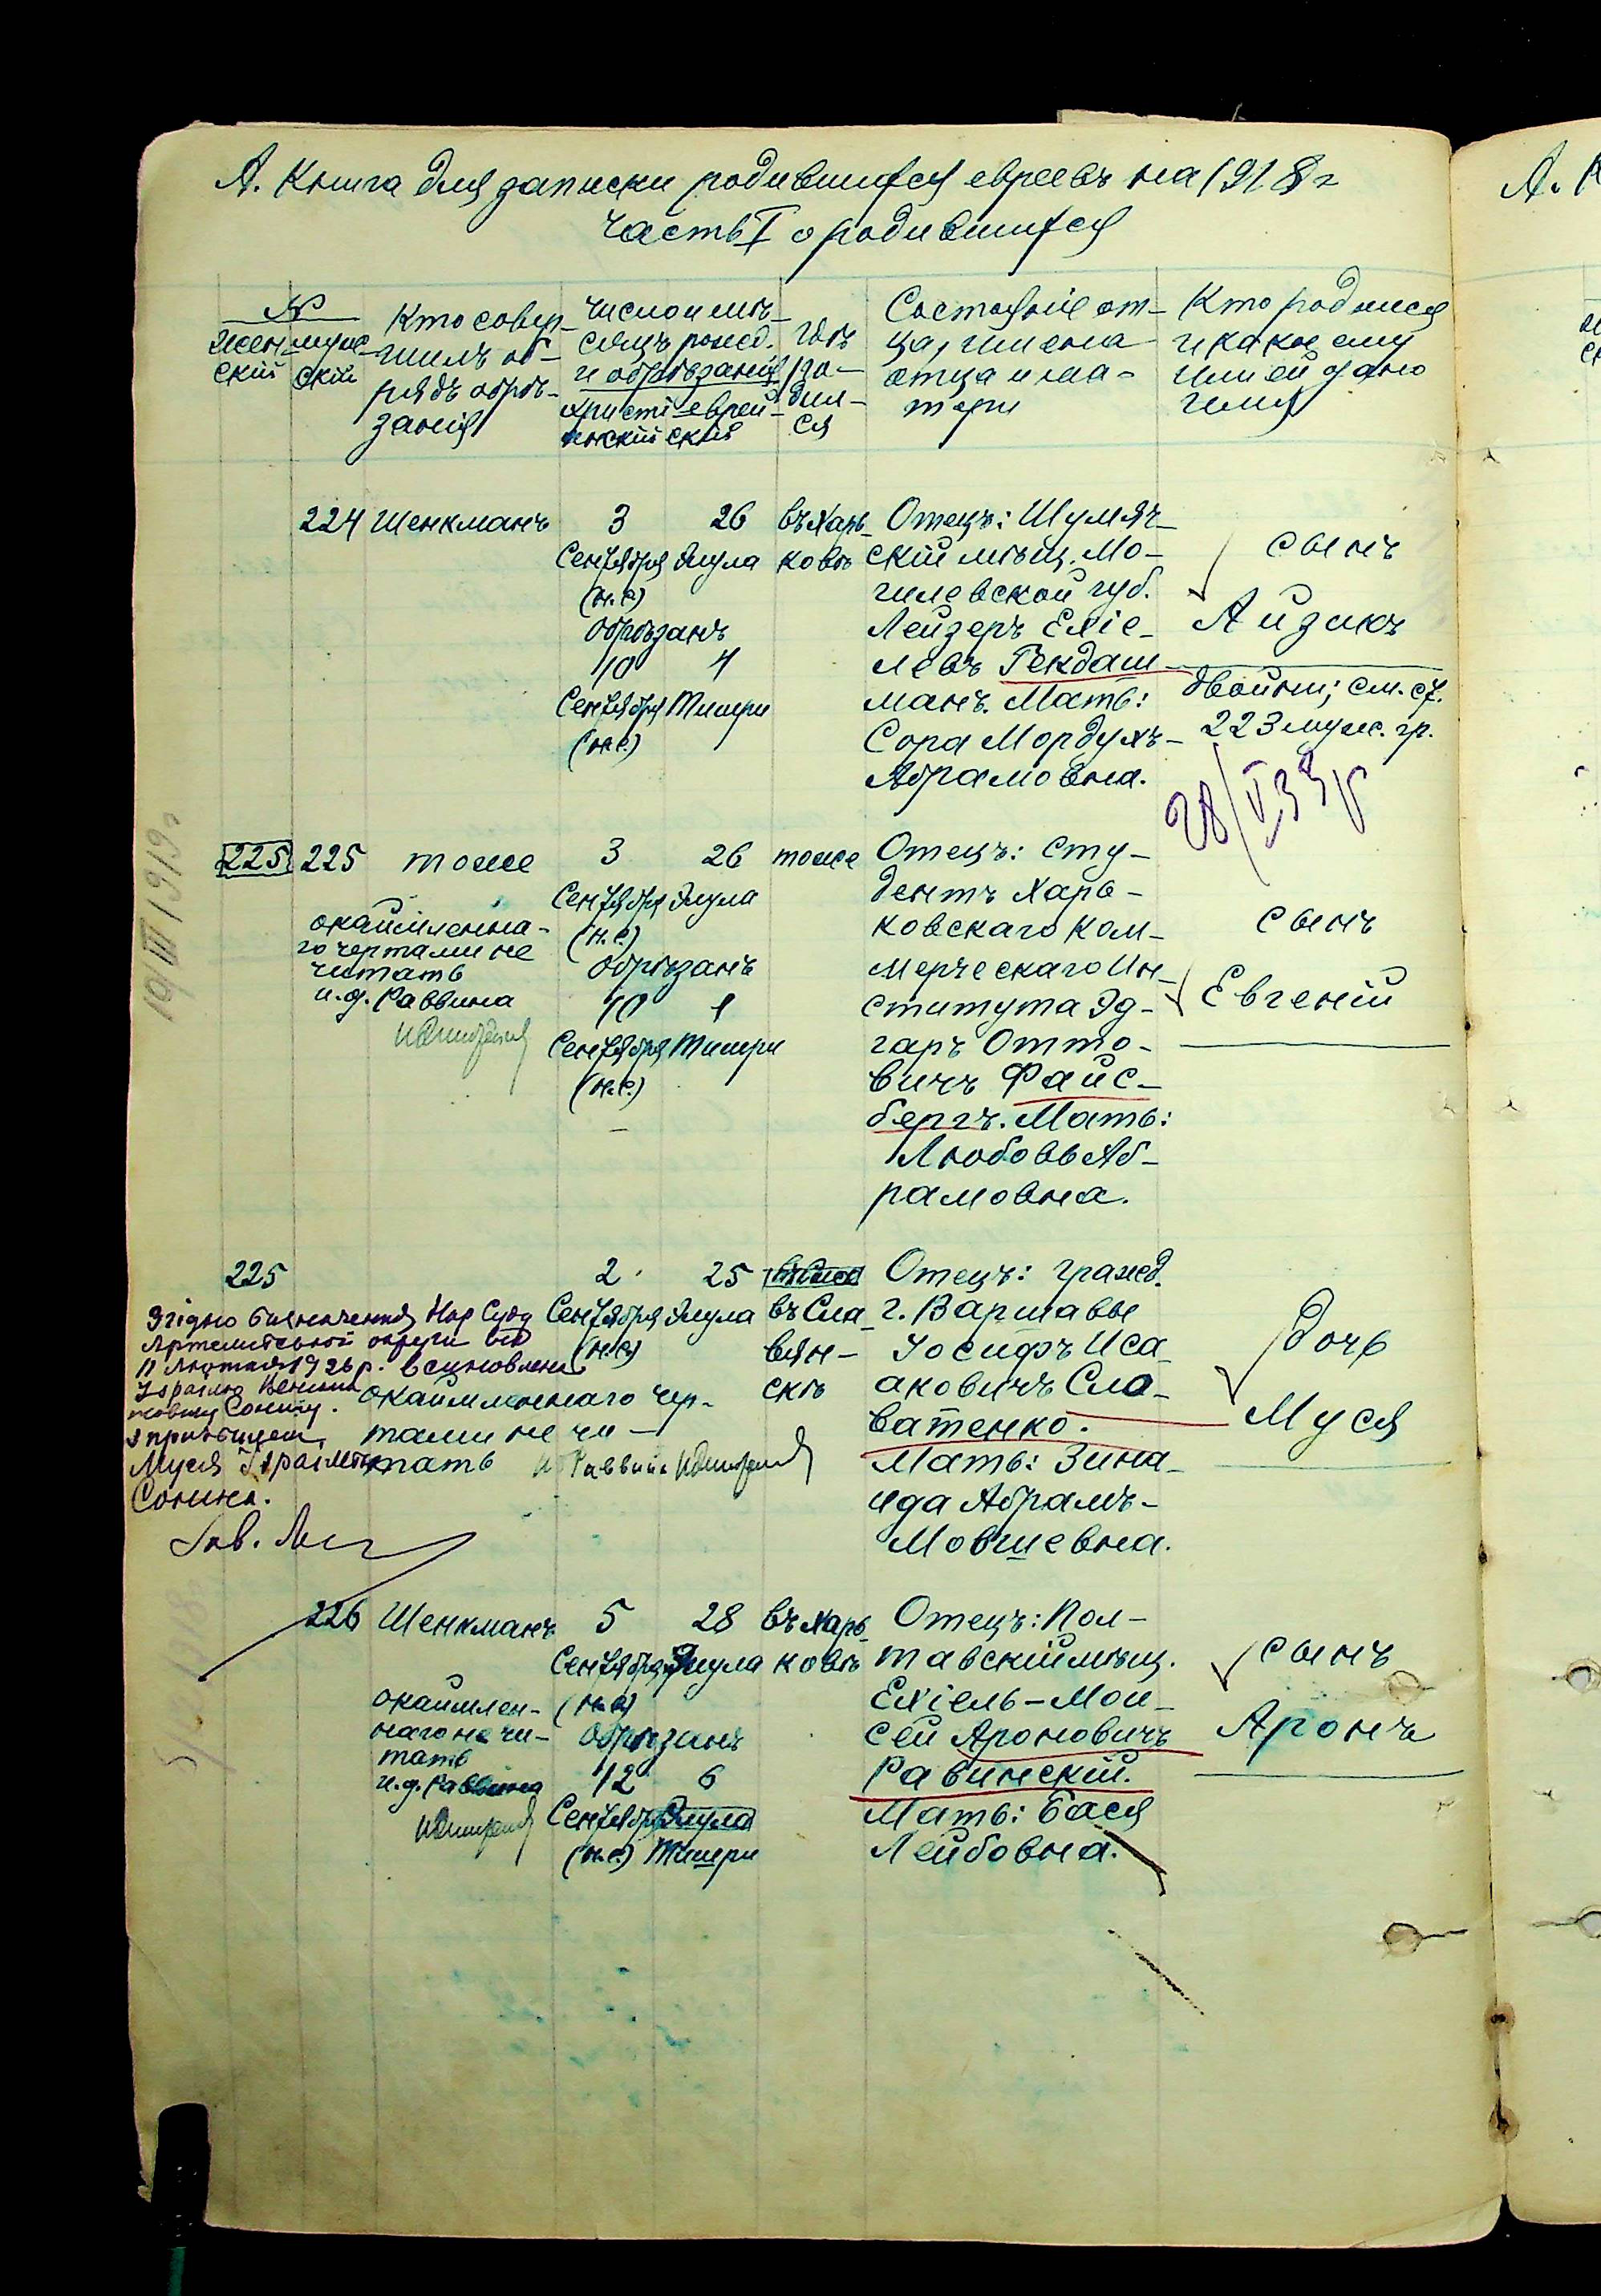 А. Книга для записки родившихся евреевъ на 1918 г
Часть I о родившихся
№
Жен-
скій
муже-
скій
Кто совер-
шилъ об-
рядъ обрѣ-
занія
Число и мѣ-
сяцъ рожд.
и обрѣзанія
христі-
янскій
еврей-
скій
Гдѣ
ро-
дил-
ся
Состояніе от-
ца, имена
отца и ма-
тери
Кто родился
и какое ему
или ей дано
имя
224 Шенкманъ
3 26
Сентября Элула
(н.с.)
Обрѣзанъ
10 4
Сентября Тишри
(н.с.)
въ Харь-
ковѣ
Отецъ: Шумяч-
скій мѣщ. Мо-
гилевской губ.
Лейзеръ Ехіе-
левъ Гекдаш-
манъ. Мать:
Сора Мордухъ-
Абрамовна.
сынъ
Айзикъ
двойни; см. ст.
223 муж. гр.
28/V 33 р
19/III 1919 г
225 225 тоже
окаймленна-
го чертами не
читать
и.д. Раввина
3 26
Сентября Элула
(н.с.)
Обрѣзанъ
10 4
Сентября Тишри
(н.с.)
тоже
Отецъ: сту-
дентъ Харь-
ковскаго Ком-
мерческаго Ин-
ститута Эд-
гаръ Отто-
вичъ Файс-
бергъ. Мать:
Любовь Аб-
рамовна.
сынъ
Евгеній
225
Згідно Нар Суду
Артемівської округи від
11 Лютня 1926 р. всиновлена
Ізраїлю
Соніну.
з прізвищем
Муся Ізраїлівна
Соніна.
Зав.
окаймленнаго чер-
тами не чи-
тать Раввинъ
2 25
Сентября Элула
(н.с.)
въ Сла-
вян-
скѣ
Отецъ: гражд.
г. Варшавы
Іосифъ Иса-
аковичъ Сло-
ватенко.
Мать: Зина-
ида Абрамъ-
Мовшевна.
дочь
Муся
226 Шенкманъ
окаймлен-
наго не чи-
тать
и.д. Раввина
5 28
Сентября Элула
(н.с.)
Обрѣзанъ
12 6
Сентября Элула
(н.с.) Тишри
въ Харь-
ковѣ
Отецъ: Пол-
тавскій мѣщ.
Ехіель-Мои-
сей Ароновичъ
Равинскій.
Мать: Бася
Лейбовна.
сынъ
Аронъ